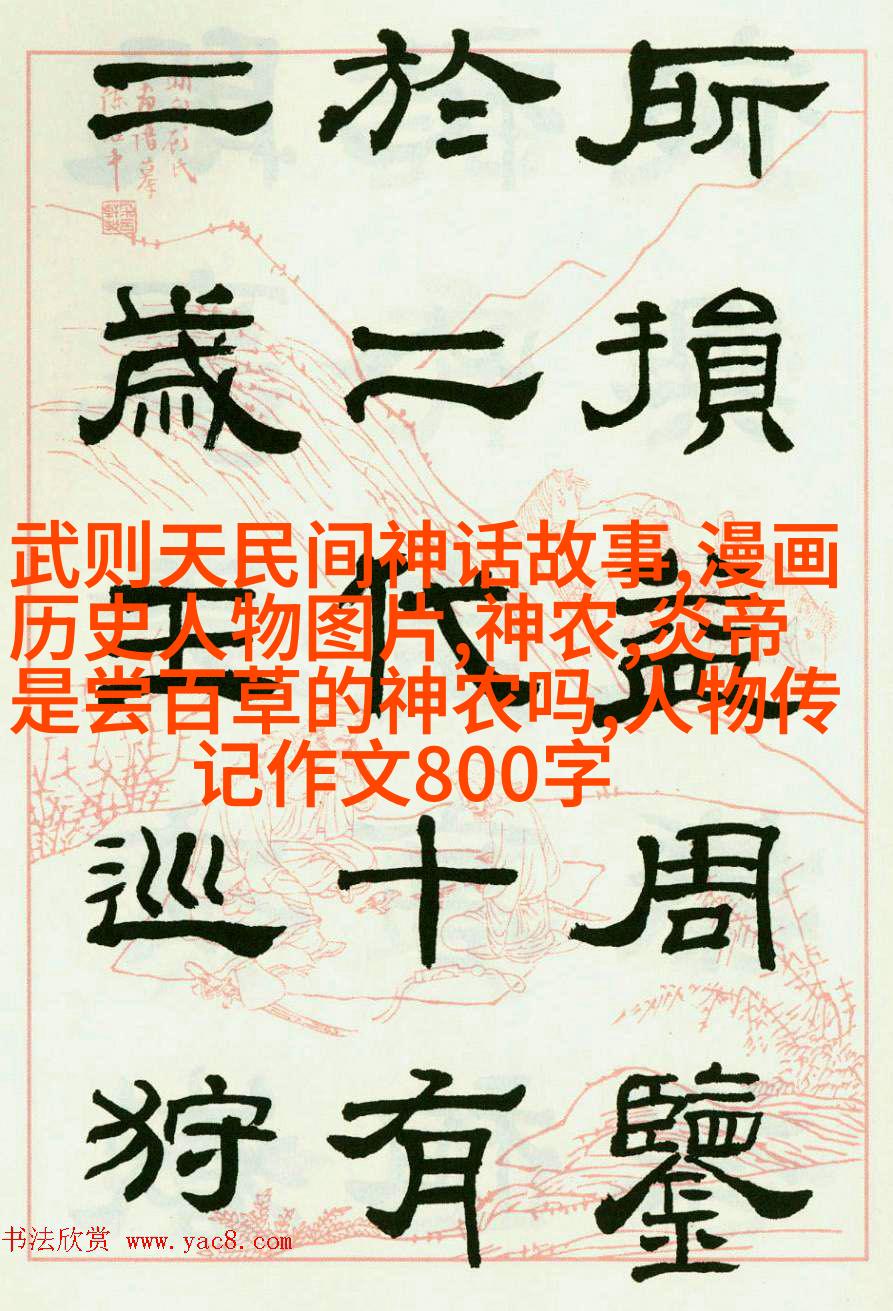 所損益周鑒
於二代十有
二歲王巡狩
武则天民间神话故事,漫画
历史人物图片,神农,炎帝
是尝百草的神农吗,人物传
记作文800字
书法欣赏 www.yac8.com